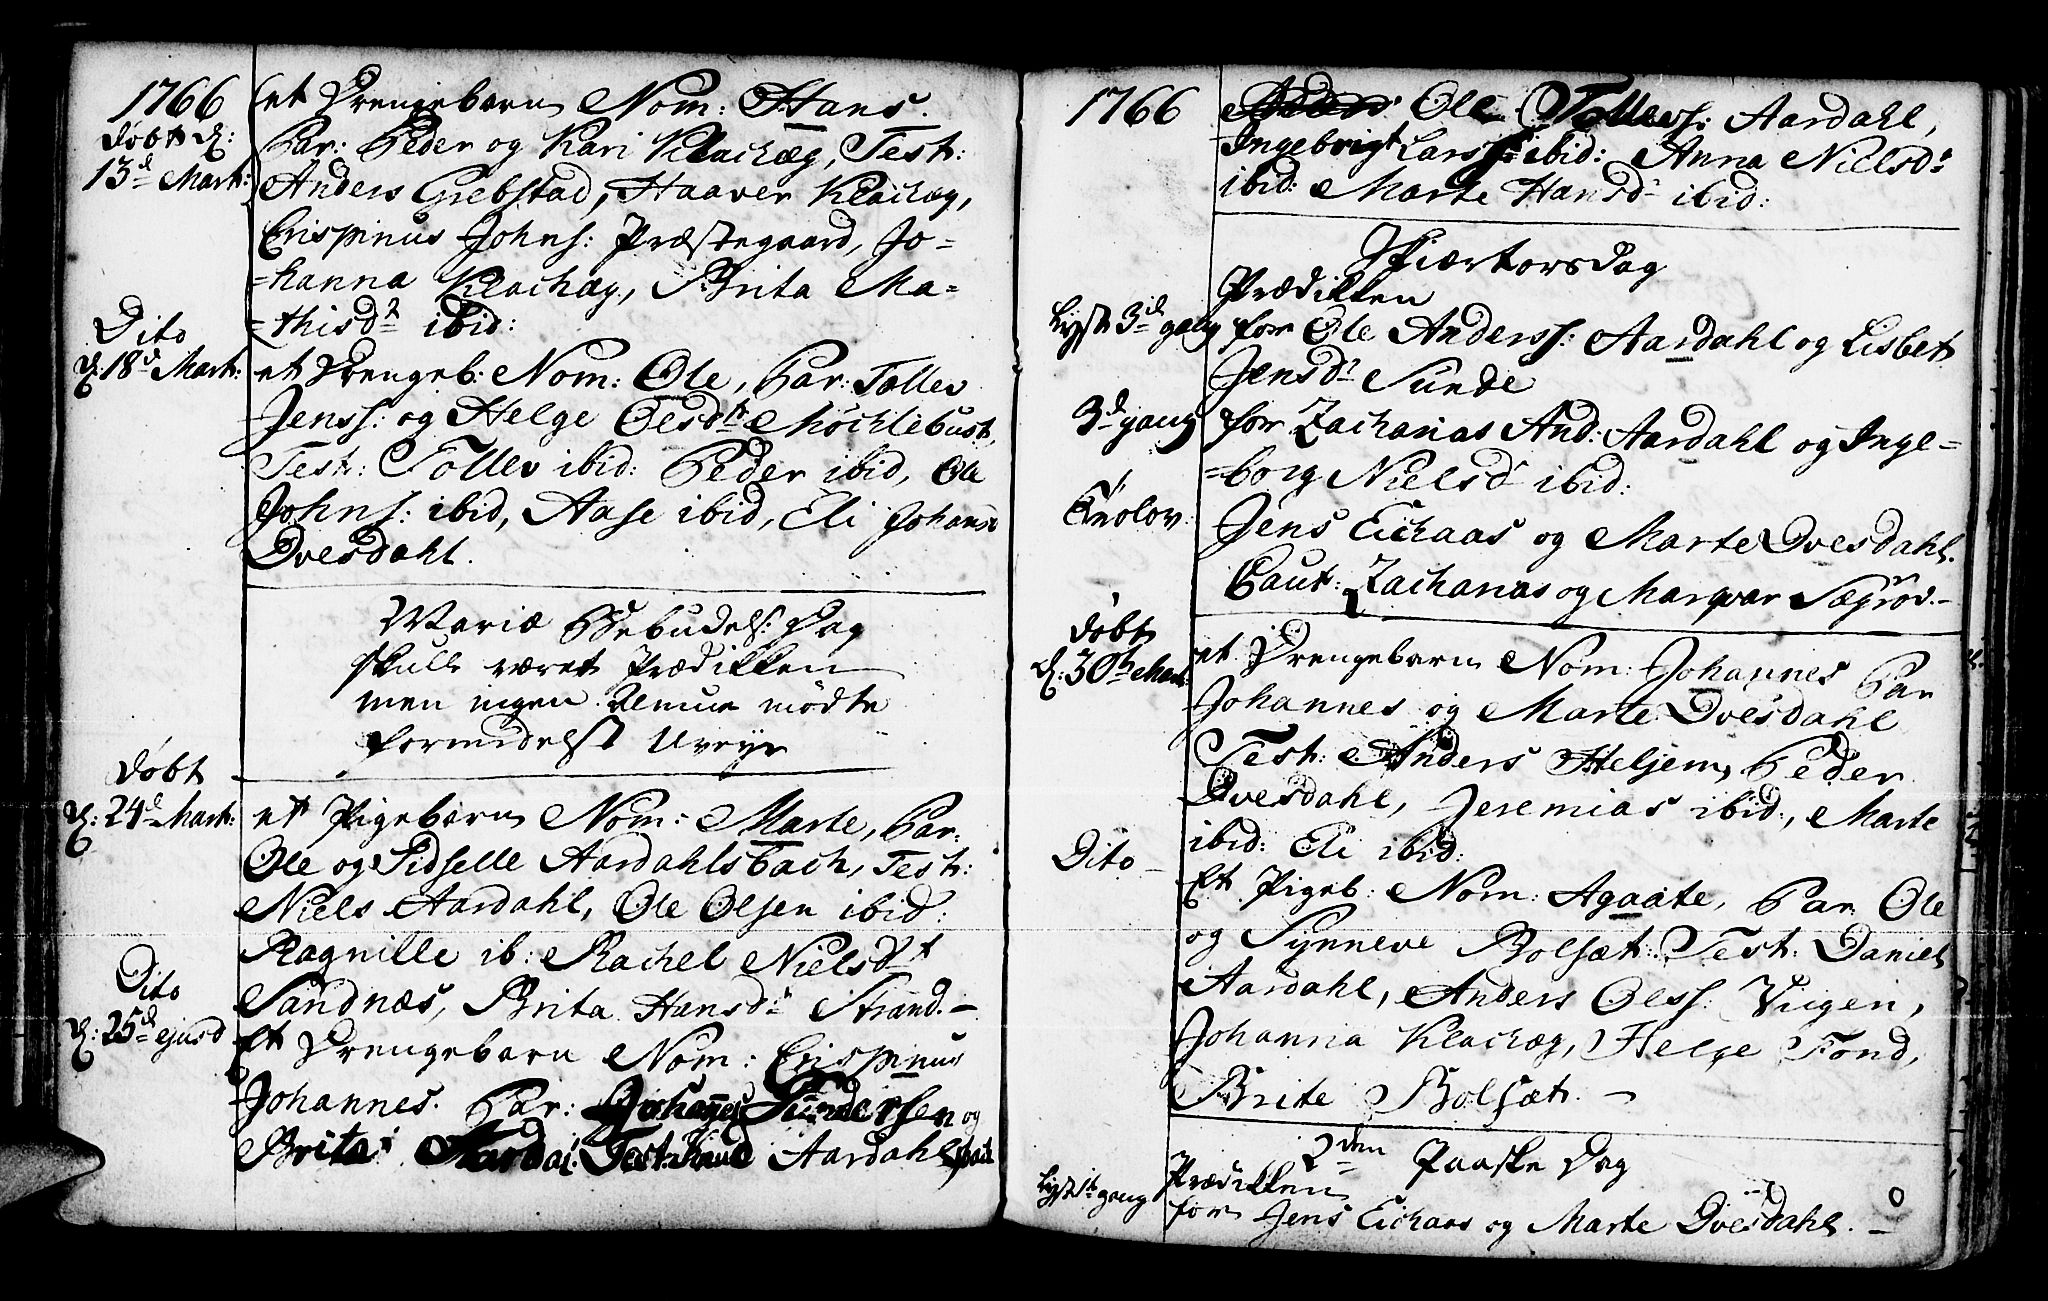 1766
et Drengebarn Nom: Hans.
døbt d:
13d Mart:
Par: Peder og Kari Klachæg, Test:
Anders Grebstad, Haaver Klachæg,
Crispinus Johns: Præstegaard, Jo-
-hanna Klachæg, Brita Ma-
-thisdr ibid:
Dito
d: 18d Mart:
et Drengeb: Nom: Ole, Par: Tollev
Jenss: og Helge Olsdtr Møchlebust,
Test: Tollev ibid: Peder ibid, Ole
Johns: ibid, Aase ibid, Eli Johansd
Dvesdahl.
Mariæ Bebudels: Dag
skulle været Prædikken
men ingen Almue mödte
formedelst Uveyr
døbt
d: 24d Mart:
et Pigebarn Nom: Marte, Par:
Ole og Sidselle Aardahlsbach, Test:
Niels Aardahl, Ole Olsen ibid:
Ragnille ib: Rachel Nielsdt
Sandnæs, Brita Hansdr Strand.-
Dito
d: 25d ejusd
Et Drengebarn Nom: Crispinus
Johannes. Par: Sundersen og
Brita Aardal: Test: Knud Aardahl
1766
Ole Tollevs: Aardahl,
Ingebrigt Larss: ibid: Anna Nielsdr
ibid: Marte Hansdr ibid:
Skiærtorsdag
Prædikken
lyst 3d gang for Ole Anderss: Aardahl og Lisbet
Jensdr Sunde
3d gang for Zacharias And: Aardahl og Inge-
-borg Nielsdr ibid:
Trolov:
Jens Eichaas og Marte Dvesdahl.
Caut: Zacharias og Marqvar Sægrov.-
døbt
d: 30th Mart:
et Drengebarn Nom: Johannes Par
Johannes og Marte Dvesdahl
Test: Anders Heljem, Peder
Dvesdahl, Jeremias ibid:, Marte
ibid: Eli ibid:
Dito -
Et Pigeb: Nom: Agaate, Par Ole
og Synneve Bolsæt: Test: Daniel
Aardahl, Anders Olss: Viigen,
Johanna Klachæg, Helge Fond,
Brite Bolsæt. -
2den Paaske Dag
Prædikken
lyst 1te gang for Jens Eichaas og Marte Dvesdahl. -